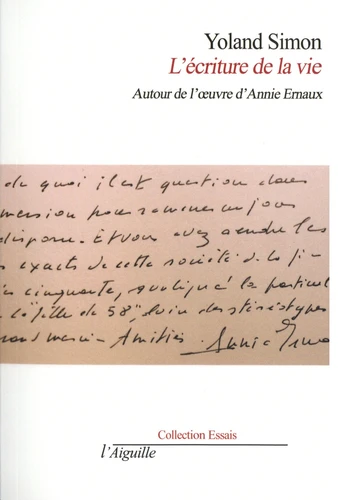 Yoland Simon
L'écriture de la vie
Autour de l'œuvre d'Annie Ernaux
de quoi il est question dans
pour
Et vous avez
exacts de cette société de la fi-
cinquante, 
la "fille de 58", loin des stéréotypes
merci. Amitiés. Annie Erna
Collection Essais
l'Aiguille